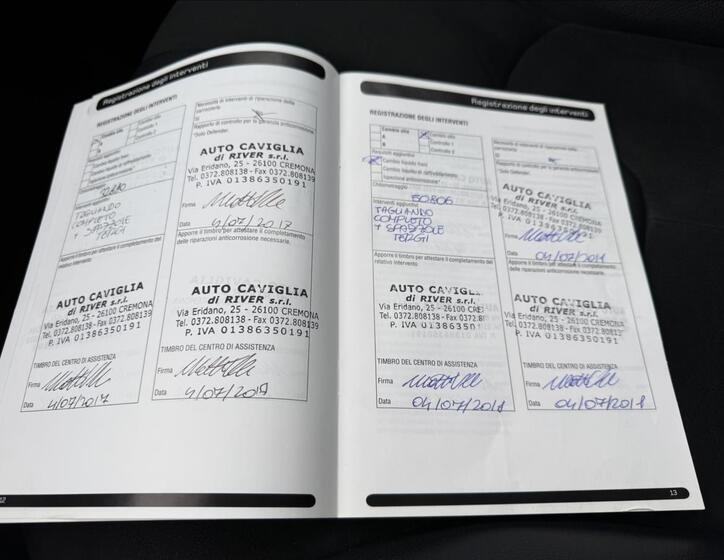 Registrazione degli interventi
REGISTRAZIONE DEGLI INTERVENTI
Cambio olio
A
B
Cambio olio
Controllo 1
Controllo 2
Requisiti aggiuntivi
Cambio liquido freni
Cambio liquido di raffreddamento
Ispezione anticorrosione*
Chilometraggio
Interventi aggiuntivi
TAGLIANDO
COMPLETO
+ SPAZZOLE
TERGI
Apporre il timbro per attestare il completamento del
relativo intervento
AUTO CAVIGLIA
di RIVER s.r.l.
Via Eridano, 25 - 26100 CREMONA
Tel. 0372.808138 - Fax 0372.808139
P. IVA 01386350191
TIMBRO DEL CENTRO DI ASSISTENZA
Firma
Data 4/07/2017
Necessità di interventi di riparazione della
carrozzeria
Sì
Rapporto di controllo per la garanzia anticorrosione.
*Solo Defender.
AUTO CAVIGLIA
di RIVER s.r.l.
Via Eridano, 25 - 26100 CREMONA
Tel. 0372.808138 - Fax 0372.808139
P. IVA 01386350191
Firma
Data 4/07/2017
Apporre il timbro per attestare il completamento
delle riparazioni anticorrosione necessarie.
AUTO CAVIGLIA
di RIVER s.r.l.
Via Eridano, 25 - 26100 CREMONA
Tel. 0372.808138 - Fax 0372.808139
P. IVA 01386350191
TIMBRO DEL CENTRO DI ASSISTENZA
Firma
Data 4/07/2017
12
Registrazione degli interventi
REGISTRAZIONE DEGLI INTERVENTI
Cambio olio
A
B
Cambio olio
Controllo 1
Controllo 2
Requisiti aggiuntivi
Cambio liquido freni
Cambio liquido di raffreddamento
Ispezione anticorrosione*
Chilometraggio
50806
Interventi aggiuntivi
TAGLIANDO
COMPLETO
+ SPAZZOLE
TERGI
Apporre il timbro per attestare il completamento del
relativo intervento
AUTO CAVIGLIA
di RIVER s.r.l.
Via Eridano, 25 - 26100 CREM
Tel. 0372.808138 - Fax 0372.808
P. IVA 013863501
TIMBRO DEL CENTRO DI ASSISTENZA
Firma
Data 04/07/2018
Necessità di interventi di riparazione della
carrozzeria
Sì
Rapporto di controllo per la garanzia anticorrosione.
*Solo Defender.
AUTO CAVIGLIA
di RIVER s.r.l.
Via Eridano, 25 - 26100 CREMONA
Tel. 0372.808138 - Fax 0372.808139
P. IVA 01386350191
Firma
Data 04/07/2018
Apporre il timbro per attestare il completamento
delle riparazioni anticorrosione necessarie.
AUTO CAVIGLIA
di RIVER s.r.l.
Via Eridano, 25 - 26100 CREMONA
Tel. 0372.808138 - Fax 0372.808139
P. IVA 01386350191
TIMBRO DEL CENTRO DI ASSISTENZA
Firma
Data 04/07/2018
13